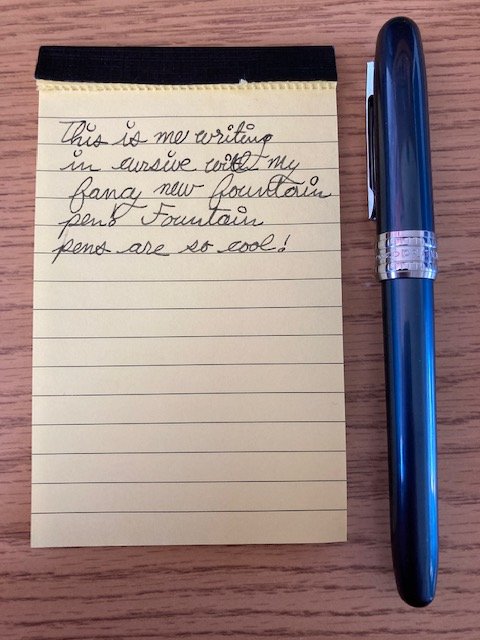 This is me writing
in cursive with my
fancy new fountain
pen! Fountain
pens are so cool!